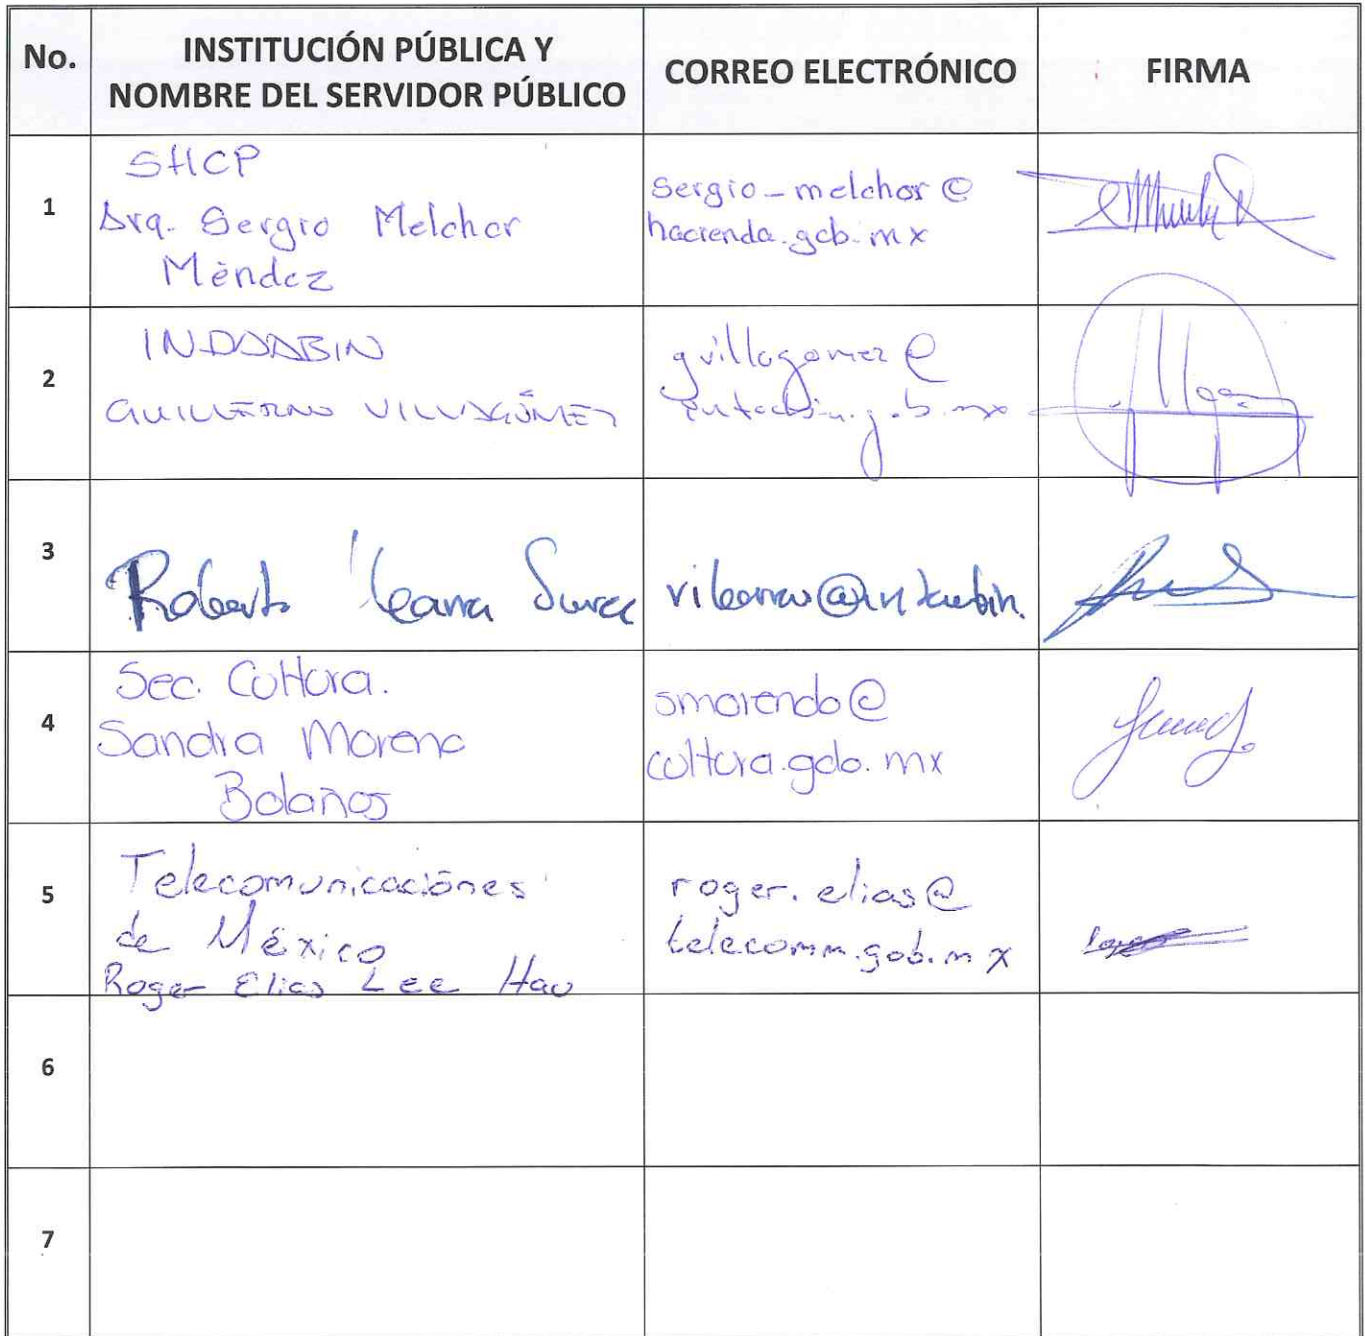 No.
INSTITUCIÓN PÚBLICA Y
NOMBRE DEL SERVIDOR PÚBLICO
CORREO ELECTRÓNICO
FIRMA
1
SHCP
Arq. Sergio Melchor
Méndez
sergio_melchor@
hacienda.gob.mx
2
INDAABIN
GUILLERMO VILLAGÓMEZ
gvillagomez@
indaabin.gob.mx
3
Roberto
4
Sec. Cultura.
Sandra Moreno
Bolaños
smorenobo@
cultura.gob.mx
5
Telecomunicaciones
de México
Roger Elias Lee Hau
roger.elias@
telecomm.gob.mx
6
7